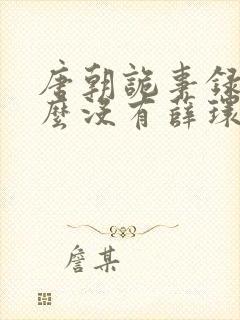 唐朝詭事録
麼没有薛環
詹某